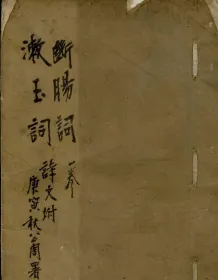 斷腸詞一卷
漱玉詞
詩文附
庚寅秋公周署